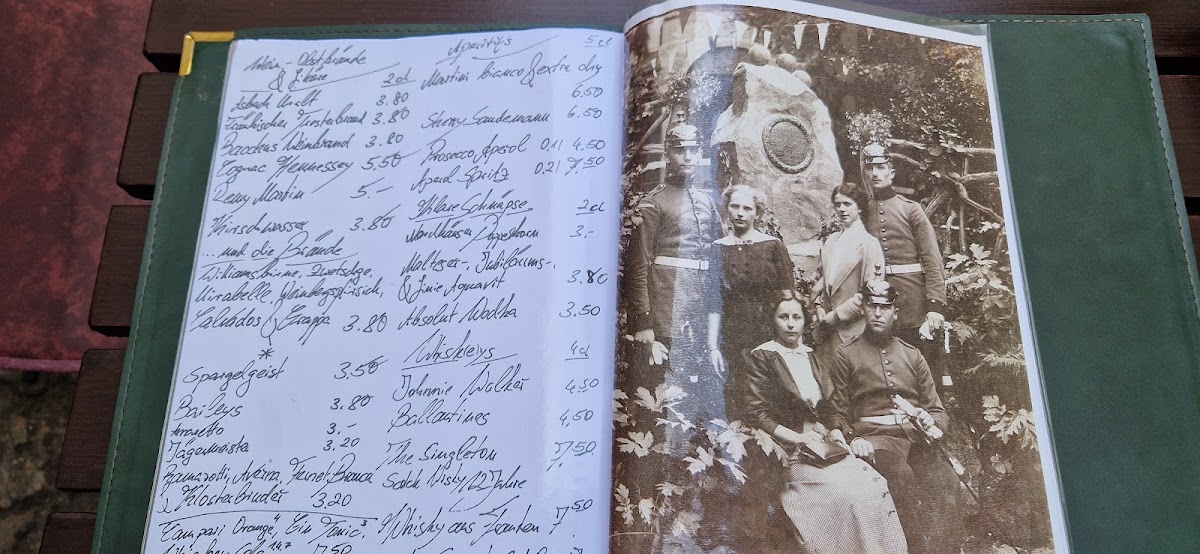 Wein-Obstbrände
& Liköre 2cl
Asbach Uralt 3.80
Fränkischer Tresterbrand 3.80
Weinbrand 3.80
Cognac Hennessey 5.50
Remy Martin 5.-
Kirschwasser 3.80
... und die Brände
Williamsbirne, Zwetschge,
Mirabelle, Weinbergspfirsich,
Calvados & Grappa 3.80
*
Spargelgeist 3.50
Baileys 3.80
Amaretto 3.-
Jägermeister 3.20
Ramazotti, Averna, Fernet Branca
& Klosterbruder 3.20
Campari Orange, Gin Tonic
7.50
Aperitifs 5cl
Martini bianco & extra dry
6.50
Sherry Sandemann 6.50
Prosecco, Aperol 0.1l 4.50
Aperol Spritz 0.2l 7.50
Klare Schnäpse 2cl
Nordhäuser Doppelkorn 3.-
Malteser-, Jubiläums-,
& Linie Aquavit 3.80
Absolut Wodka 3.50
Whiskeys 4cl
Johnnie Walker 4.50
Ballantines 4,50
The Singleton 7.50
Scotch Wisky 12 Jahre
Whisky aus Franken 7.50